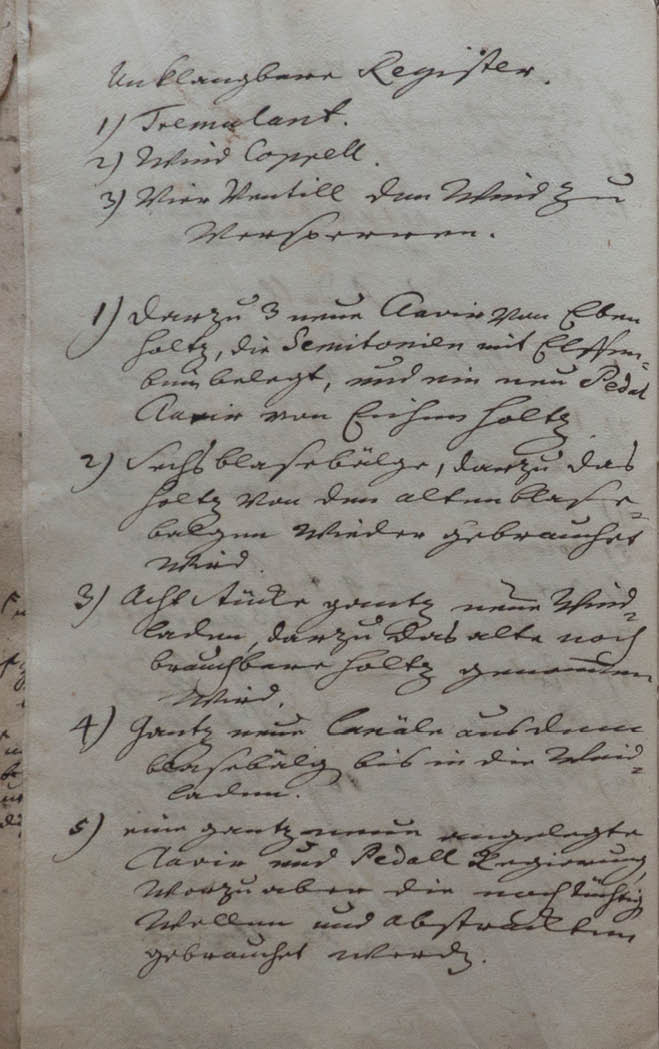 Unklangbare Register.
1) Tremulant.
2) Wind Coppell.
3) Vier Ventill den Wind zu
Versperren.
1) Darzu 3 neue Clavir von Eben
holtz, die Semitonien mit Elffen-
bein belegt, und ein neu Pedal
Clavir von Eichen holtz
2) Sechs blasebälge, darzu das
holtz von den alten blase-
balgen wieder gebrauchet
wird.
3) Acht Stücke gantz neue Wind-
laden, darzu das alte noch
brauchbare holtz genommen
wird.
4) Gantz neue Canäle aus denen
blasebälg bis in die Wind-
laden.
5) eine gantz neue angelegte
Clavir und Pedall Regierung,
Worzu aber die noch tüchtig
Wellen und abstrackten
gebrauchet werd.